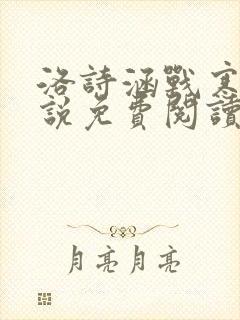 洛詩涵戰寒
說免費閱讀
月亮月亮